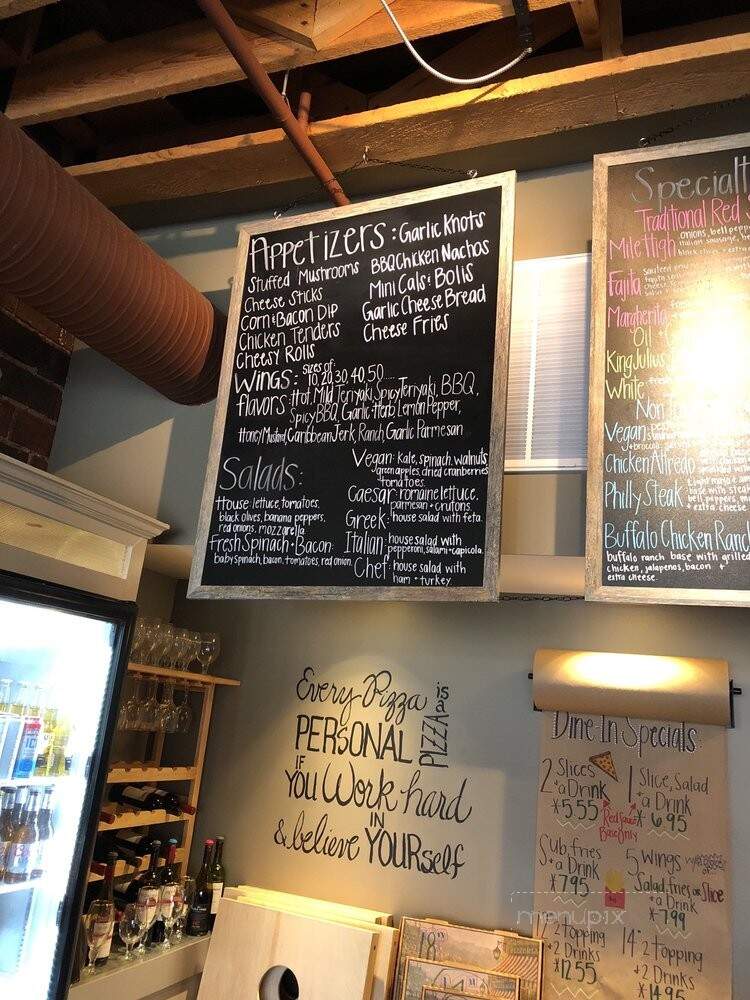 Appetizers: Garlic Knots
Stuffed Mushrooms BBQ Chicken Nachos
Cheese Sticks Mini Cals & Bolis
Corn & Bacon Dip Garlic Cheese Bread
Chicken Tenders Cheese Fries
Cheesy Rolls
Wings: sizes of: 10, 20, 30, 40, 50
flavors: Hot, Mild, Teriyaki, Spicy Teriyaki, BBQ,
Spicy BBQ, Garlic Herb, Lemon Pepper,
Honey Mustard, Caribbean Jerk, Ranch, Garlic Parmesan
Salads:
House: lettuce, tomatoes,
black olives, banana peppers,
red onions, mozzarella
Fresh Spinach & Bacon:
baby spinach, bacon, tomatoes, red onion.
Vegan: kale, spinach, walnuts
green apples, dried cranberries
tomatoes.
Caesar: romaine lettuce,
parmesan & crutons.
Greek: house salad with feta.
Italian: house salad with
pepperoni, salami & capicola.
Chef: house salad with
ham & turkey.
Specialt
Traditional Red
Mile High onions, bell peppe
italian sausage, be
Fajita
Margherita
Oil
King Julius
White
Non
Vegan
Chicken Alfredo
Philly Steak base with steak
bell peppers,
& extra cheese
Buffalo Chicken Ranc
buffalo ranch base with grilled
chicken, jalapenos, bacon &
extra cheese
Every Pizza is a
PERSONAL PIZZA
IF
YOU Work hard
IN
& believe YOURself
Dine-In Specials
2 Slices
& a Drink
5.55
1 Slice, Salad
& a Drink
6.95
Red Sauce
Base Only
Sub, fries
& a Drink
7.95
5 Wings
Salad, fries or Slice
7.99
12" 2 Topping
& 2 Drinks
12.55
14" 2 Topping
& 2 Drinks
14.95
18"
menupix